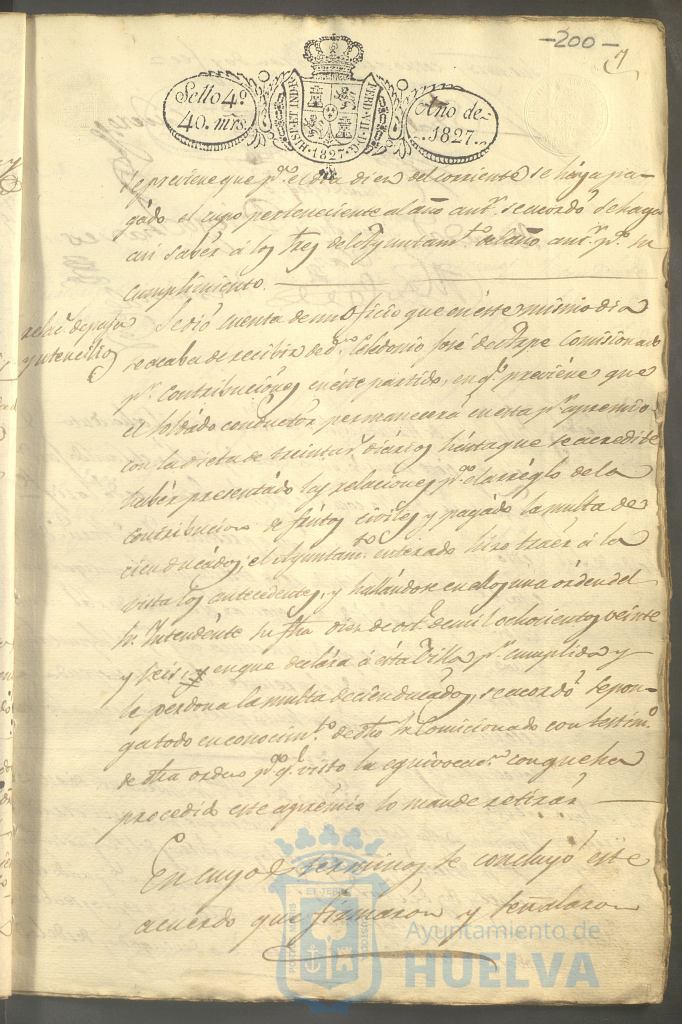 -200-
7
Sello 4º
40. mrs.
HISPAN. REX
FERD. VII. D. G.
1827
Año de
1827.
se previene que pª. el dia diez del corriente se haya pa-
gado el cupo perteneciente al año antr. se acordó se haga
asi saber á los Srej del Ayuntamto. del año antr. pª. su
cumplimiento.
relacs. de paja
y utencilios
Se dió cuenta de un Oficio que en este mismo dia
se acaba de recibir de Dn. Celedonio José de Comisionado
pr. contribuciones en este partido, en qe. previene que
el soldado conductor permanecerá en esta pr. apremio
con la dieta de treinta rs. diarios hasta que se acredite
haber presentado las relaciones pª. el arreglo de la
contribucion de frutos civiles y pagado la multa de
cien ducados; el Ayuntamto. enterado hizo traer á la
vista los antecedentes, y hallandose en ellos una orden del
Sr. Intendente su fha diez de de mil ochocientos veinte
y seis, en que declara á esta Villa pr. cumplida y
le perdona la multa de cien ducados, se acordó se pon-
ga todo en conocimto. de dho Sr. Comicionado con testimo.
de dha orden pª. qe. visto la equivocacn. con que ha
procedido este apremio lo mande retirar
En cuyos terminos se concluyó este
acuerdo que firmaron y señalaron
Ayuntamiento de
HUELVA